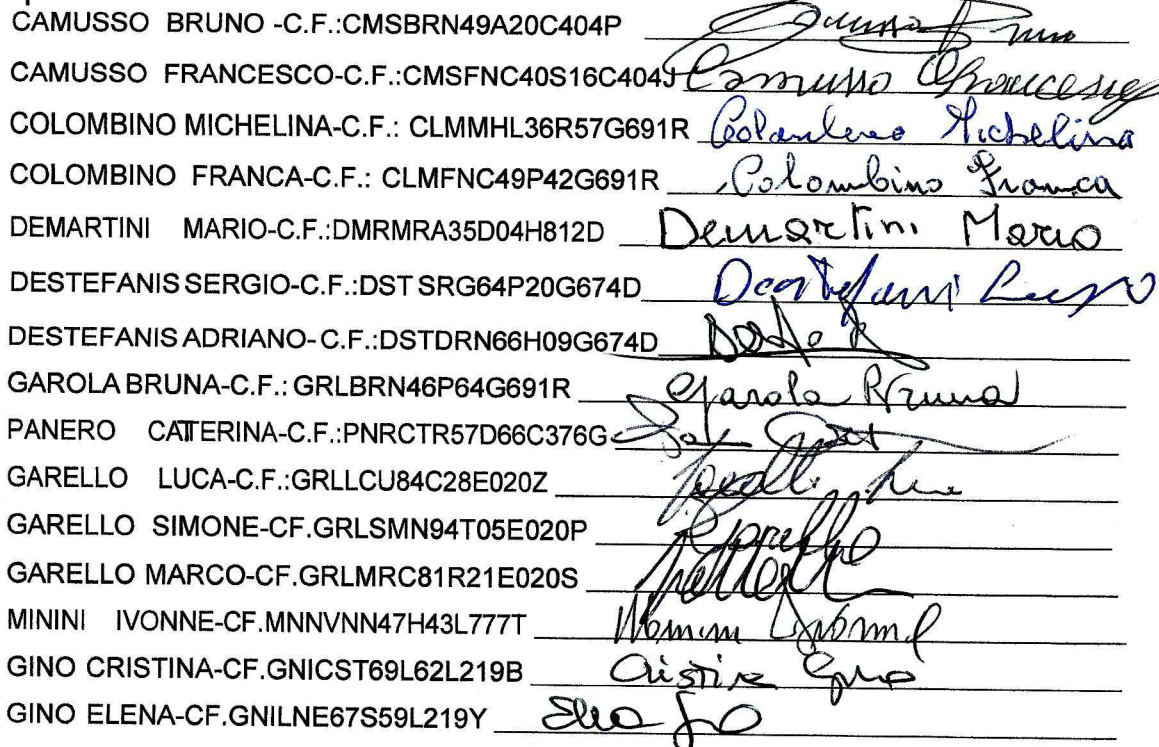 CAMUSSO BRUNO -C.F.:CMSBRN49A20C404P
CAMUSSO FRANCESCO-C.F.:CMSFNC40S16C404J Camusso Francesco
COLOMBINO MICHELINA-C.F.: CLMMHL36R57G691R Michelina
COLOMBINO FRANCA-C.F.: CLMFNC49P42G691R Colombino Franca
DEMARTINI MARIO-C.F.:DMRMRA35D04H812D Demartini Mario
DESTEFANIS SERGIO-C.F.:DST SRG64P20G674D
DESTEFANIS ADRIANO- C.F.:DSTDRN66H09G674D
GAROLA BRUNA-C.F.: GRLBRN46P64G691R Garola Bruna
PANERO CATTERINA-C.F.:PNRCTR57D66C376G
GARELLO LUCA-C.F.:GRLLCU84C28E020Z
GARELLO SIMONE-CF.GRLSMN94T05E020P
GARELLO MARCO-CF.GRLMRC81R21E020S
MININI IVONNE-CF.MNNVNN47H43L777T
GINO CRISTINA-CF.GNICST69L62L219B Cristina Gino
GINO ELENA-CF.GNILNE67S59L219Y